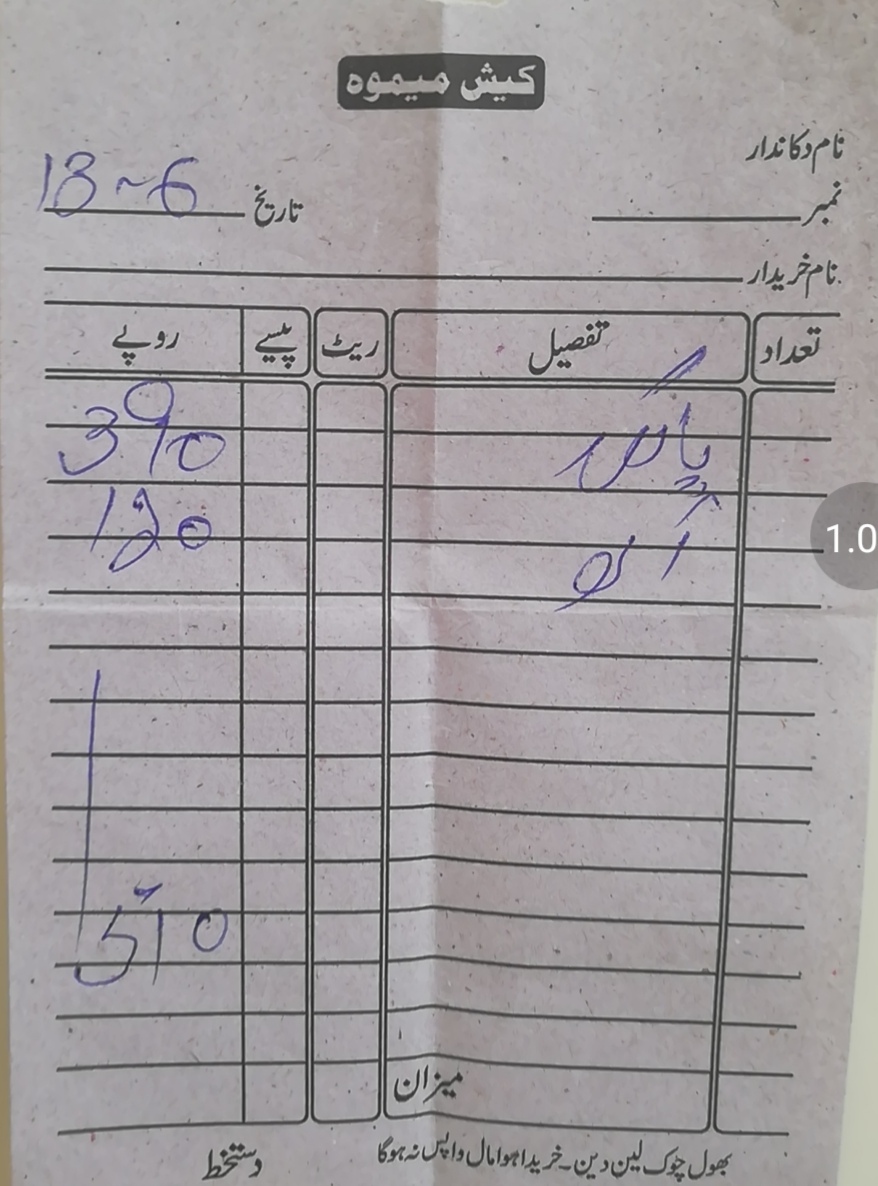 کیش میموه
نام دکاندار
نمبر تاریخ 13-6
نام خریدار
تعداد تفصیل ریٹ پیسے روپے
390
آلو 120
510
میزان
بھول چوک لین دین۔خریدا ہوا مال واپس نہ ہوگا
دستخط
1.0